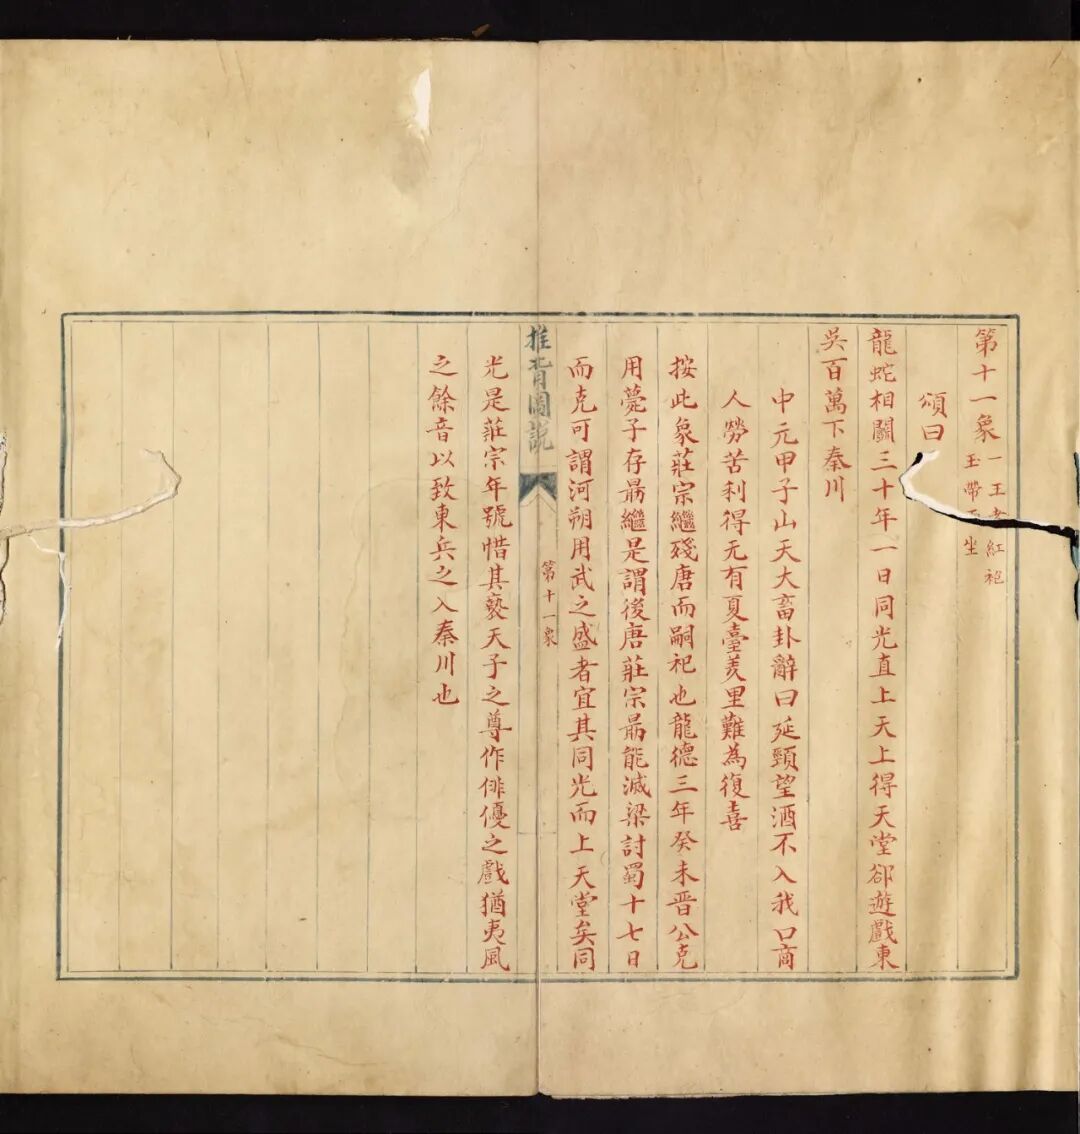 第十一象 一王者紅袍
玉帶 坐
頌曰
龍蛇相鬬三十年一日同光直上天上得天堂郤遊戲東
吳百萬下秦川
中元甲子山天大畜卦辭曰延頸望酒不入我口商
人勞苦利得无有夏臺羑里難為復喜
按此象莊宗繼殘唐而嗣祀也龍德三年癸未晋公克
用薨子存朂繼是謂後唐莊宗朂能滅梁討蜀十七日
而克可謂河朔用武之盛者宜其同光而上天堂矣同
推背圖說
第十一象
光是莊宗年號惜其褻天子之尊作俳優之戲猶夷風
之餘音以致東兵之入秦川也